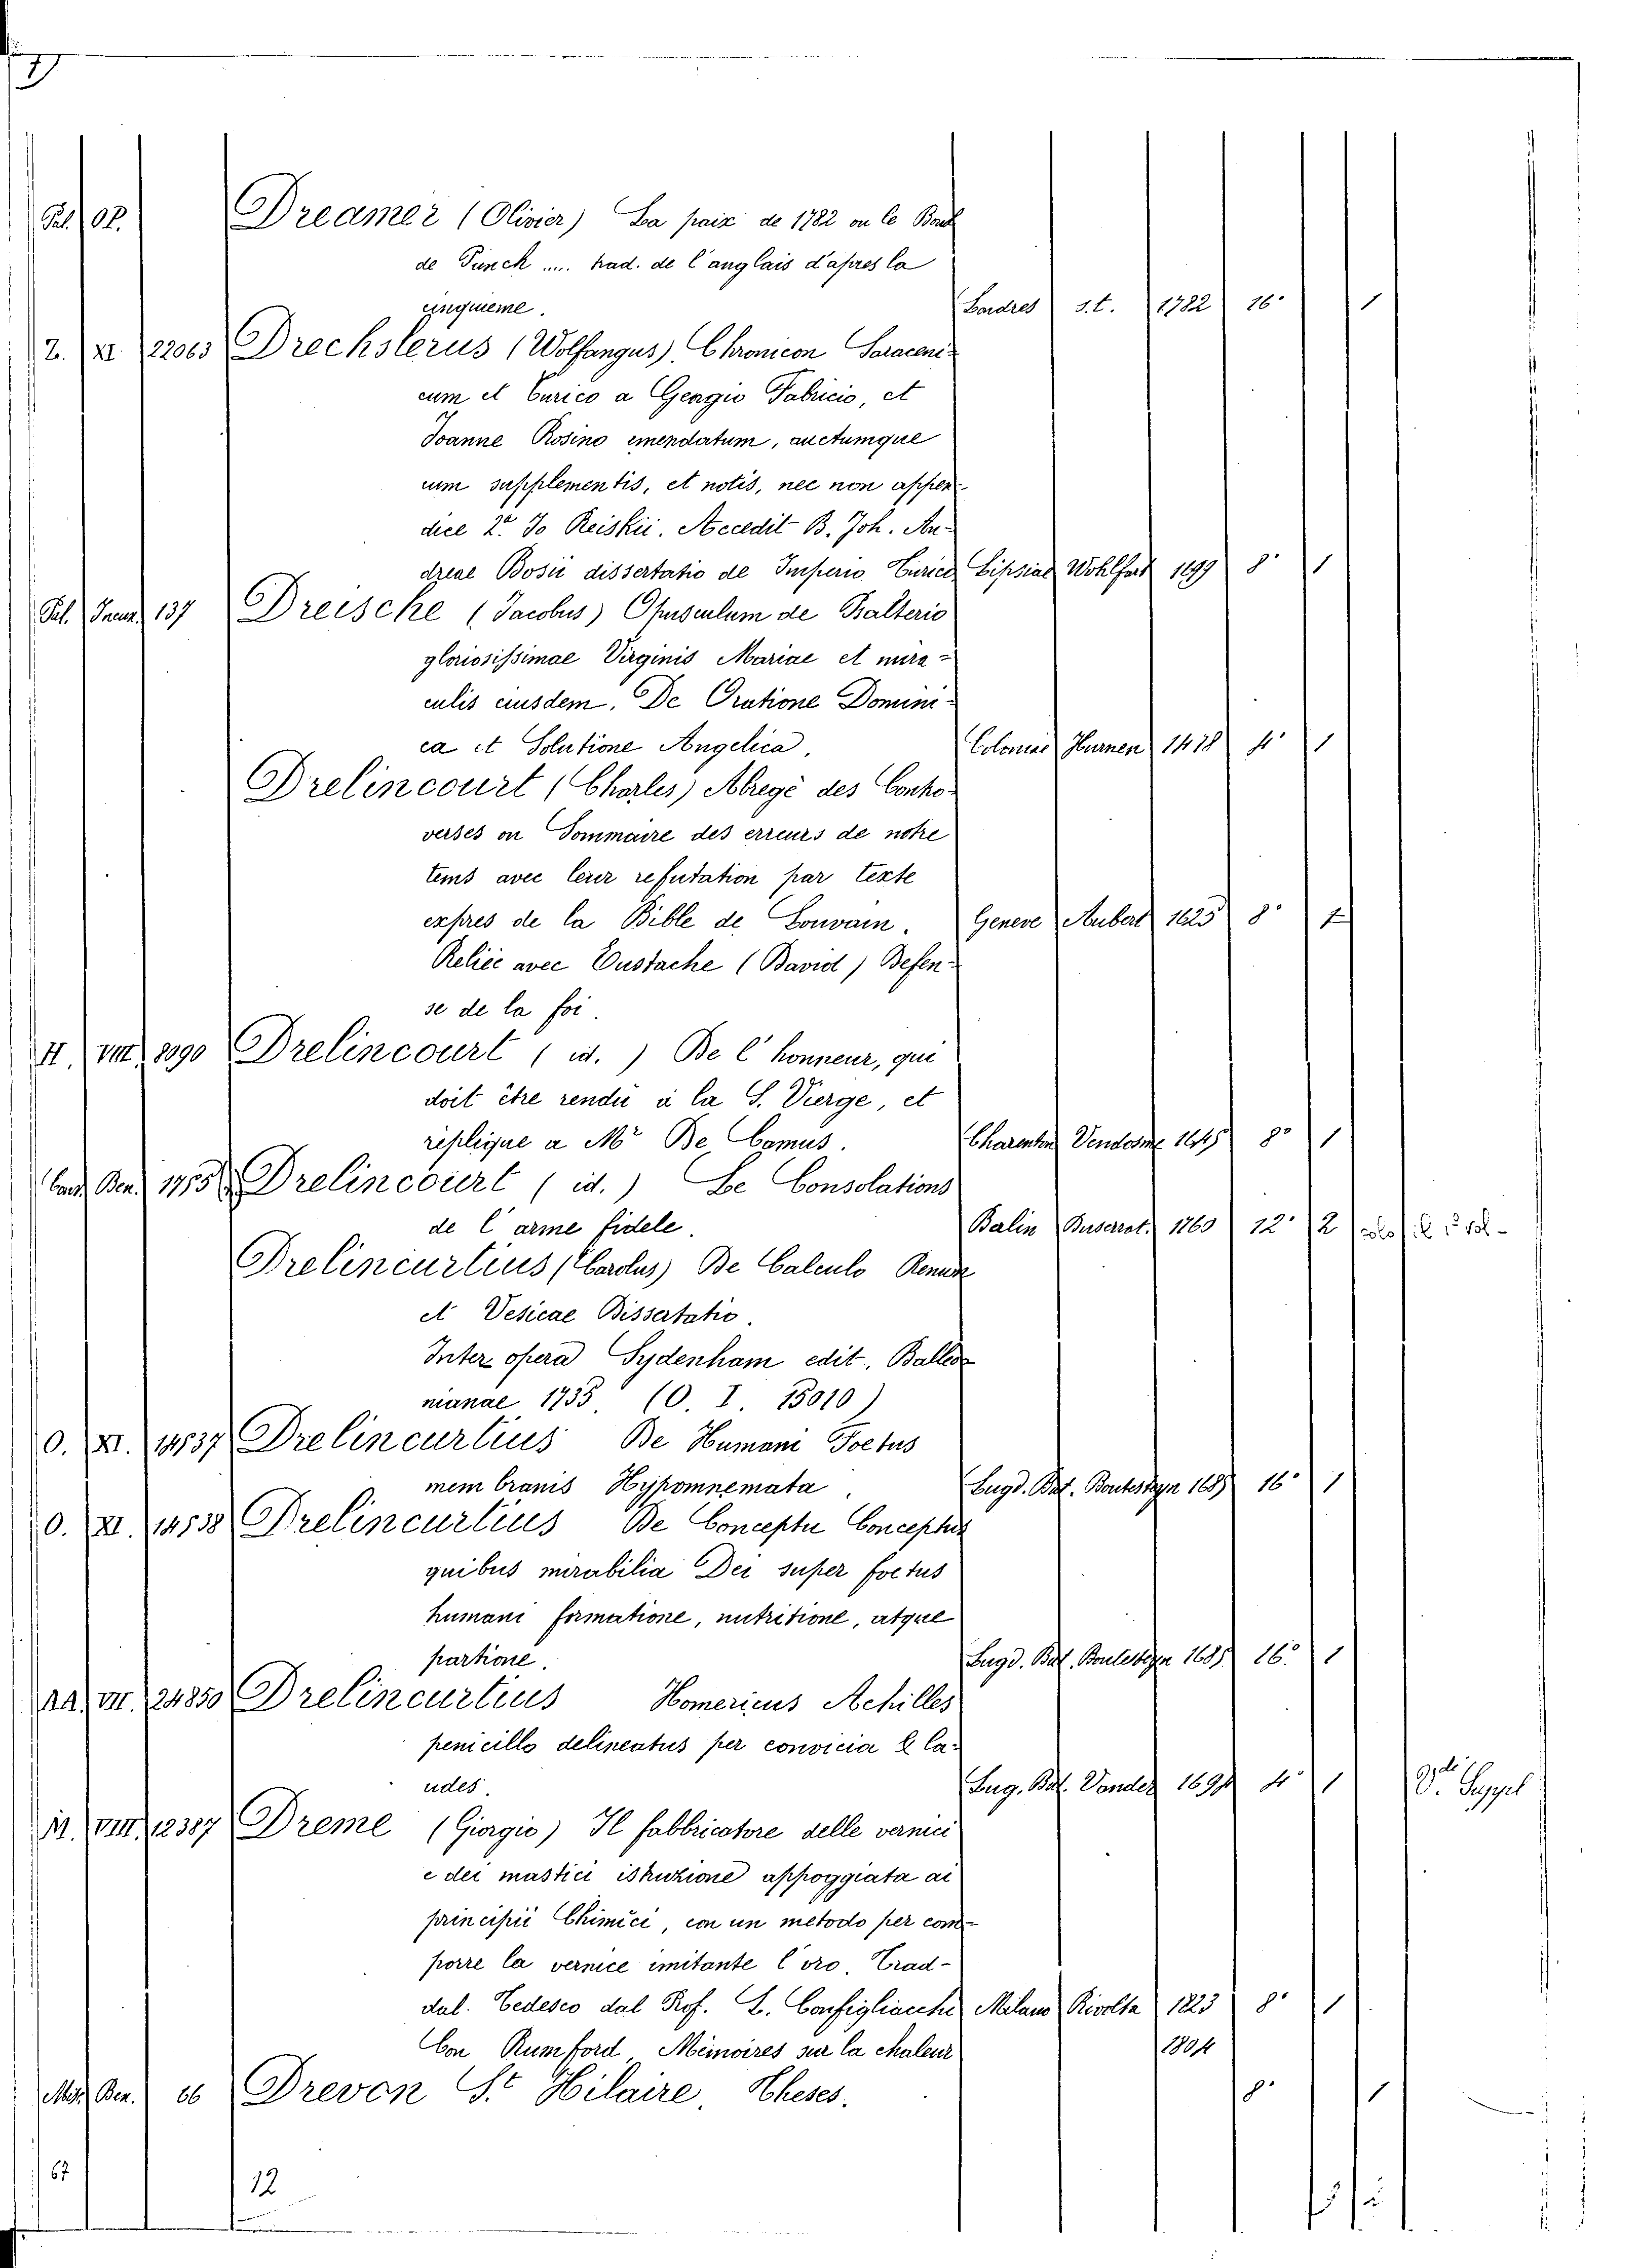 Pal. Op. Dreamer (Olivier) La paix de 1782 ou le Bowl
de Punch .... trad. de l'anglais d'apres la
cinquieme. Londres s.t. 1782 16° 1
Z. XI. 22063 Drechslerus (Wolfangus) Chronicon Saraceni-
cum et Turico a Georgio Fabricio, et
Joanne Rosino emendatum, auctumque
cum supplementis, et notis, nec non appen-
dice Jo Reiskii. Accedit B. Joh. An-
dreae Bosii dissertatio de Imperio Turico Lipsiae Wohlfart 1699 8° 1
Pal. 137 Dreische (Jacobus) Opusculum de Psalterio
gloriosissimae Virginis Mariae et mira-
culis eiusdem. De Oratione Domini-
ca et Solutione Angelica. Coloniae Hurnen 1478 4° 1
Drelincourt (Charles) Abregé des Contro-
verses ou Sommaire des erreurs de notre
tems avec leur refutation par texte
expres de la Bible de Louvain. Geneve Aubert 1625 8° 1
Reliée avec Eustache (David) Defen-
se de la foi.
H. VIII. 8090 Drelincourt (id.) De l'honneur, qui
doit être rendu à la S. Vierge, et
réplique a Mr De Camus. Charenton Vendosme 1645 8° 1
Ben. 1755 Drelincourt (id.) Le Consolations
de l'arme fidele. Berlin 1760 12° 2
Drelincurtius (Carolus) De Calculo Renum
et Vesicae Dissertatio.
Inter opera Sydenham edit. Balleo-
nianae 1735. (O. I. 15010)
O. XI. 14537 Drelincurtius De Humani Foetus
membranis Hypomnemata. Lugd. Bat. Boutesteyn 1685 16° 1
O. XI. 14538 Drelincurtius De Conceptu Conceptus
quibus mirabilia Dei super foetus
humani formatione, nutritione, atque
partione. Lugd. Bat. Boutesteyn 1685 16° 1
AA. VII. 24850 Drelincurtius Homericus Achilles
penicillo delineatus per convicia & la-
udes. Lug. Bat. Vander 1694 4° 1
M. VIII. 12387 Dreme (Giorgio) Il fabbricatore delle vernici
e dei mastici istruzione appoggiata ai
principii Chimici, con un metodo per com-
porre la vernice imitante l'oro. Trad-
dal. Tedesco dal Prof. L. Configliacchi Milano Rivolta 1823 8° 1
Con Rumford, Mémoires sur la chaleur 1804
Ben. 66 Drevon St. Hilaire, Theses. 8° 1
67 12